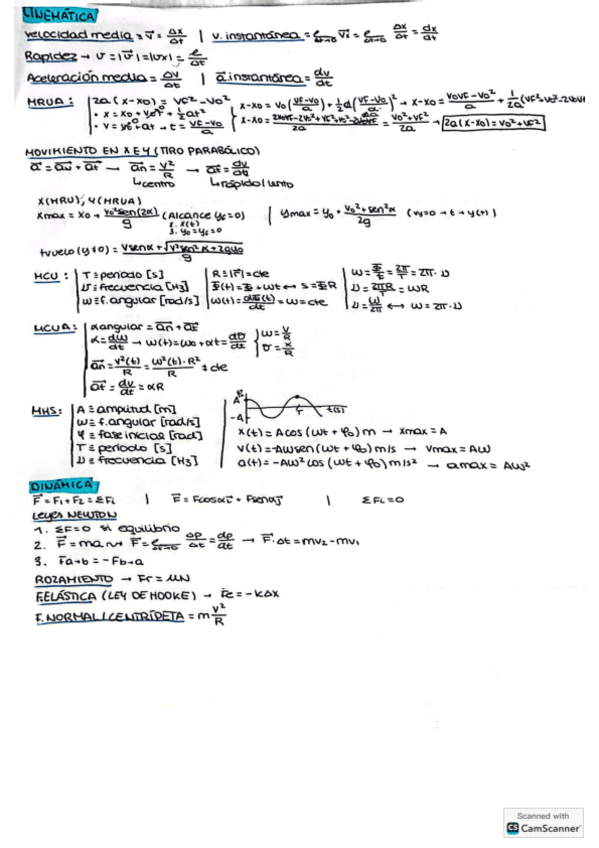 CINEMÁTICA
Velocidad media = v⃗ = Δx/Δt | v. instantánea = ℓ Δt→0 v⃗i = ℓ Δt→0 Δx/Δt = dx/dt
Rapidez → v = |v⃗| = |vx| = e/Δt
Aceleración media = Δv/Δt | a⃗ instantánea = dv/dt
MRUA: | 2a(x-x0) = VF²-V0²
• x = x0 + v0t + 1/2at²
• v = v0 + at → t = (VF-V0)/a
x-x0 = V0((VF-V0)/a) + 1/2a((VF-V0)/a)² → x-x0 = (V0VF-V0²)/a + 1/2a
= (V0²+VF²)/2a → 2a(x-x0) = V0²+VF²
MOVIMIENTO EN X E Y (TIRO PARABÓLICO)
a⃗ = a⃗n + a⃗t → a⃗n = v²/R → a⃗t = dv/dt
↳centro ↳rápido/lento
X(MRU), Y(MRUA)
Xmax = X0 + V0²sen(2α)/g (Alcance yf=0) | ymax = y0 + V0²+sen²α/2g (vy=0→t→y(t))
2. x(t)
3. y0=yf=0
tvuelo (y≠0) = (Vsenα+√(V²sen²α+2gy0))/g
MCU: | T≡período [s] | R≡|r⃗|=cte | ω = Φ/t = 2π/T = 2π·ν
ν≡frecuencia [Hz] | Φ(t) = Φ0+ωt ↔ s=ΦR | v = 2πR/T = ωR
ω≡f.angular [rad/s] | ω(t) = dΦ(t)/dt = ω = cte | ν = ω/2π ↔ ω = 2π·ν
MCUA: | αangular = a⃗n + a⃗t
α = dω/dt → ω(t) = ω0+αt = dΦ/dt } ω = v/R
a⃗n = v²(t)/R = ω²(t)·R²/R ≠ cte
a⃗t = dv/dt = αR
MHS: | A ≡ amplitud [m]
ω≡f.angular [rad/s]
φ≡fase inicial [rad]
T≡período [s]
ν≡frecuencia [Hz]
A
-A
t(s)
x(t) = Acos(ωt+φ0) m → xmax=A
v(t) = -Aωsen(ωt+φ0) m/s → vmax=Aω
a(t) = -Aω²cos(ωt+φ0) m/s² → amax=Aω²
DINÁMICA
F⃗ = F1+F2 = ΣFi | F⃗ = Fcosαi⃗ + Fsenαj⃗ | ΣFi=0
Leyes NEWTON
1. ΣF=0 si equilibrio
2. F⃗ = ma → F⃗ = ℓ Δt→0 Δp/Δt = dp/dt → F⃗·Δt = mv2-mv1
3. F⃗a→b = -Fb→a
ROZAMIENTO → Fr = μN
F.ELÁSTICA (LEY DE HOOKE) → F⃗e = -kΔx
F.NORMAL/CENTRÍPETA = m v²/R
Scanned with
CS CamScanner